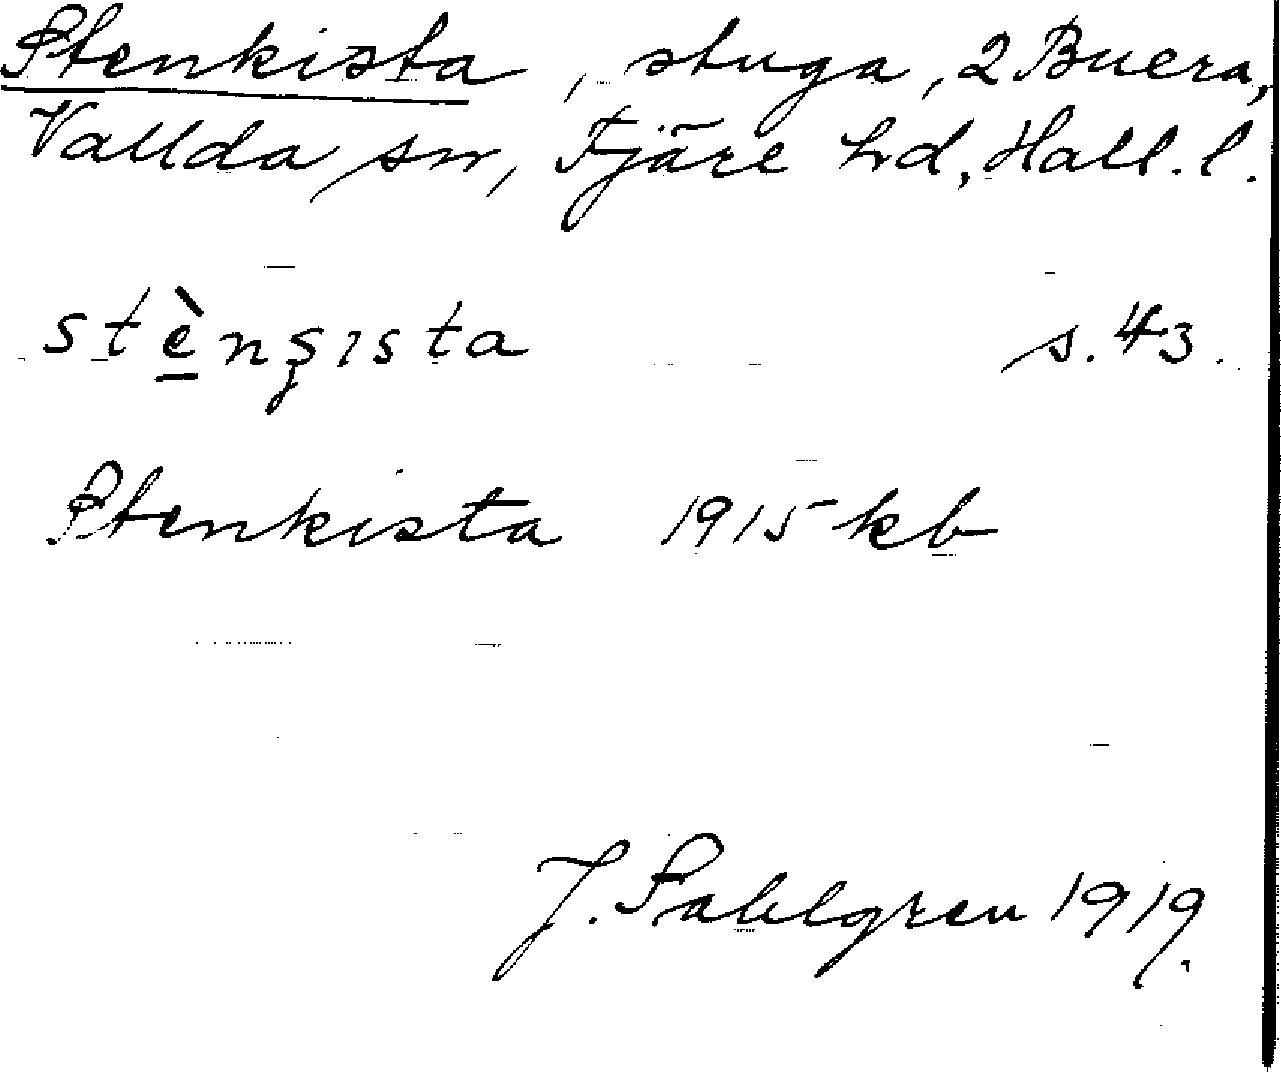 Stenkista, stuga, 2 Buera,
Vallda sn, Fjäre hd, Hall. l.
stènşısta s. 43.
Stenkista 1915 kb
J. Sahlgren 1919.